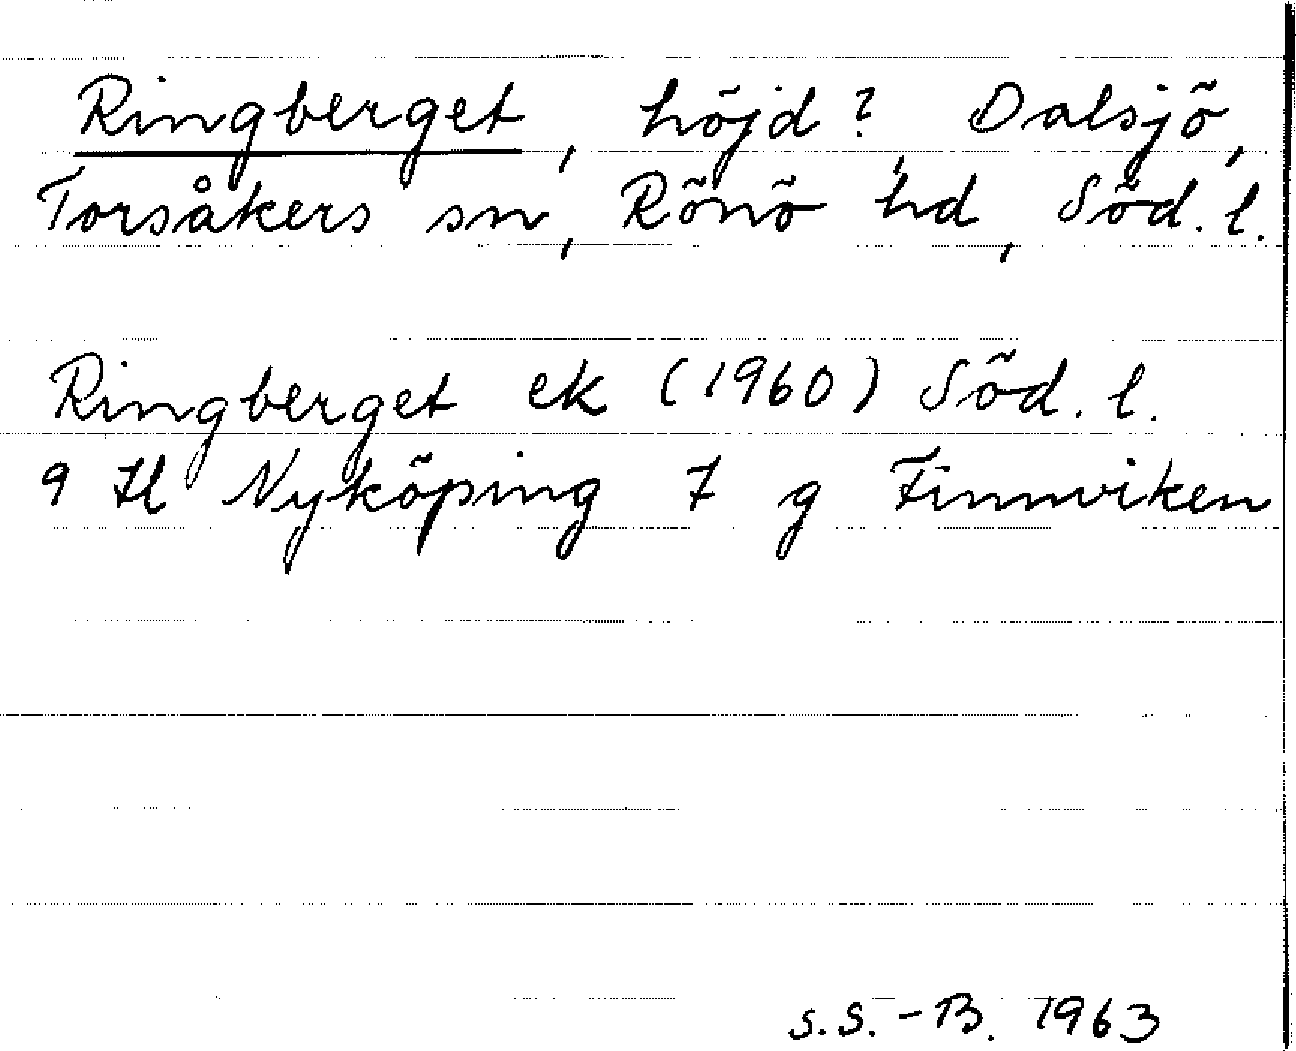 Ringberget, höjd? Dalsjö,
Torsåkers sn, Rönö hd, Söd. l.
Ringberget ek (1960) Söd. l.
9 H Nyköping 7 g Finnviken
S.S.-B. 1963